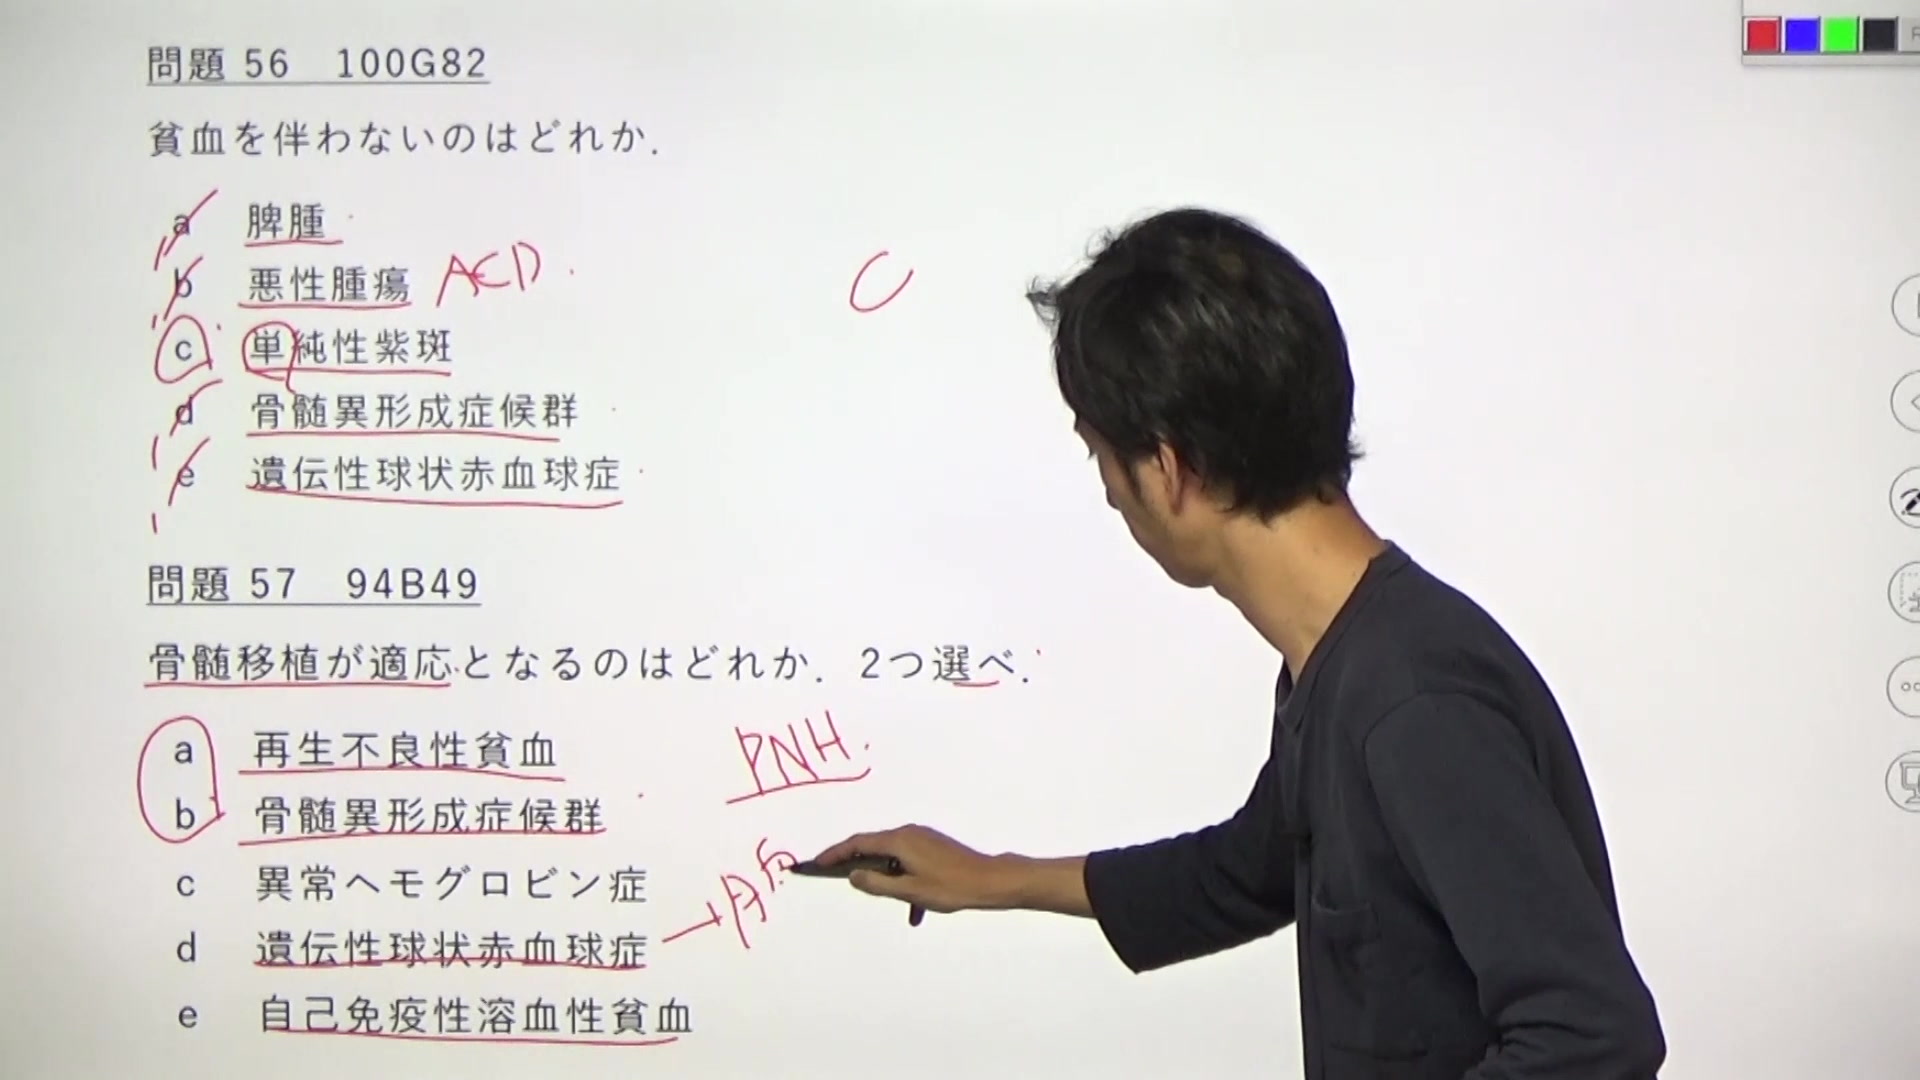 問題 56　100G82
貧血を伴わないのはどれか.
a 脾腫
b 悪性腫瘍 ACD.
c 単純性紫斑
C
d 骨髄異形成症候群
e 遺伝性球状赤血球症
問題 57　94B49
骨髄移植が適応となるのはどれか. 2つ選べ.
a 再生不良性貧血
PNH.
b 骨髄異形成症候群
c 異常ヘモグロビン症
d 遺伝性球状赤血球症 →
e 自己免疫性溶血性貧血